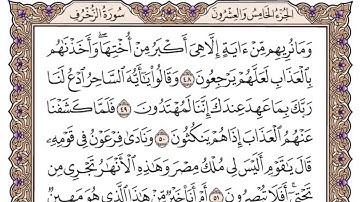 الجزء الخامس والعشرون سورة الزخرف
وَمَا نُرِيهِم مِّنْ ءَايَةٍ إِلَّا هِيَ أَكْبَرُ مِنْ أُخْتِهَا ۖ وَأَخَذْنَٰهُم
بِٱلْعَذَابِ لَعَلَّهُمْ يَرْجِعُونَ ٤٨ وَقَالُوا۟ يَٰٓأَيُّهَ ٱلسَّاحِرُ ٱدْعُ لَنَا
رَبَّكَ بِمَا عَهِدَ عِندَكَ إِنَّنَا لَمُهْتَدُونَ ٤٩ فَلَمَّا كَشَفْنَا
عَنْهُمُ ٱلْعَذَابَ إِذَا هُمْ يَنكُثُونَ ٥٠ وَنَادَىٰ فِرْعَوْنُ فِى قَوْمِهِۦ
قَالَ يَٰقَوْمِ أَلَيْسَ لِى مُلْكُ مِصْرَ وَهَٰذِهِ ٱلْأَنْهَٰرُ تَجْرِى مِن
تَحْتِىٓ ۖ أَفَلَا تُبْصِرُونَ ٥١ أَمْ أَنَا۠ خَيْرٌ مِّنْ هَٰذَا ٱلَّذِى هُوَ مَهِينٌ